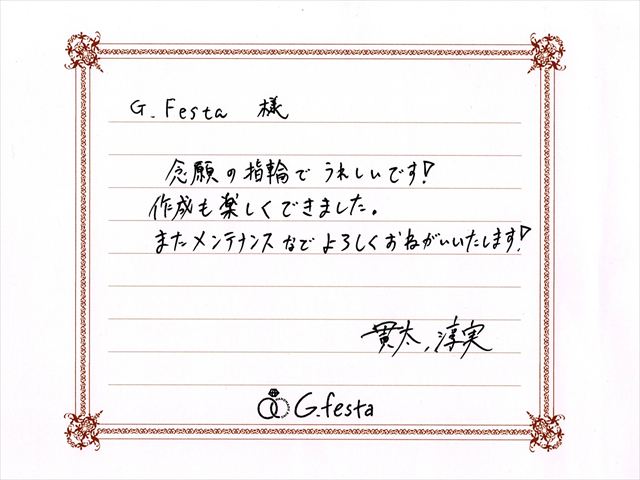 G.Festa 様
念願の指輪で うれしいです!
作成も楽しくできました。
またメンテナンスなどよろしくおねがいいたします!
貫太、淳実
G.festa